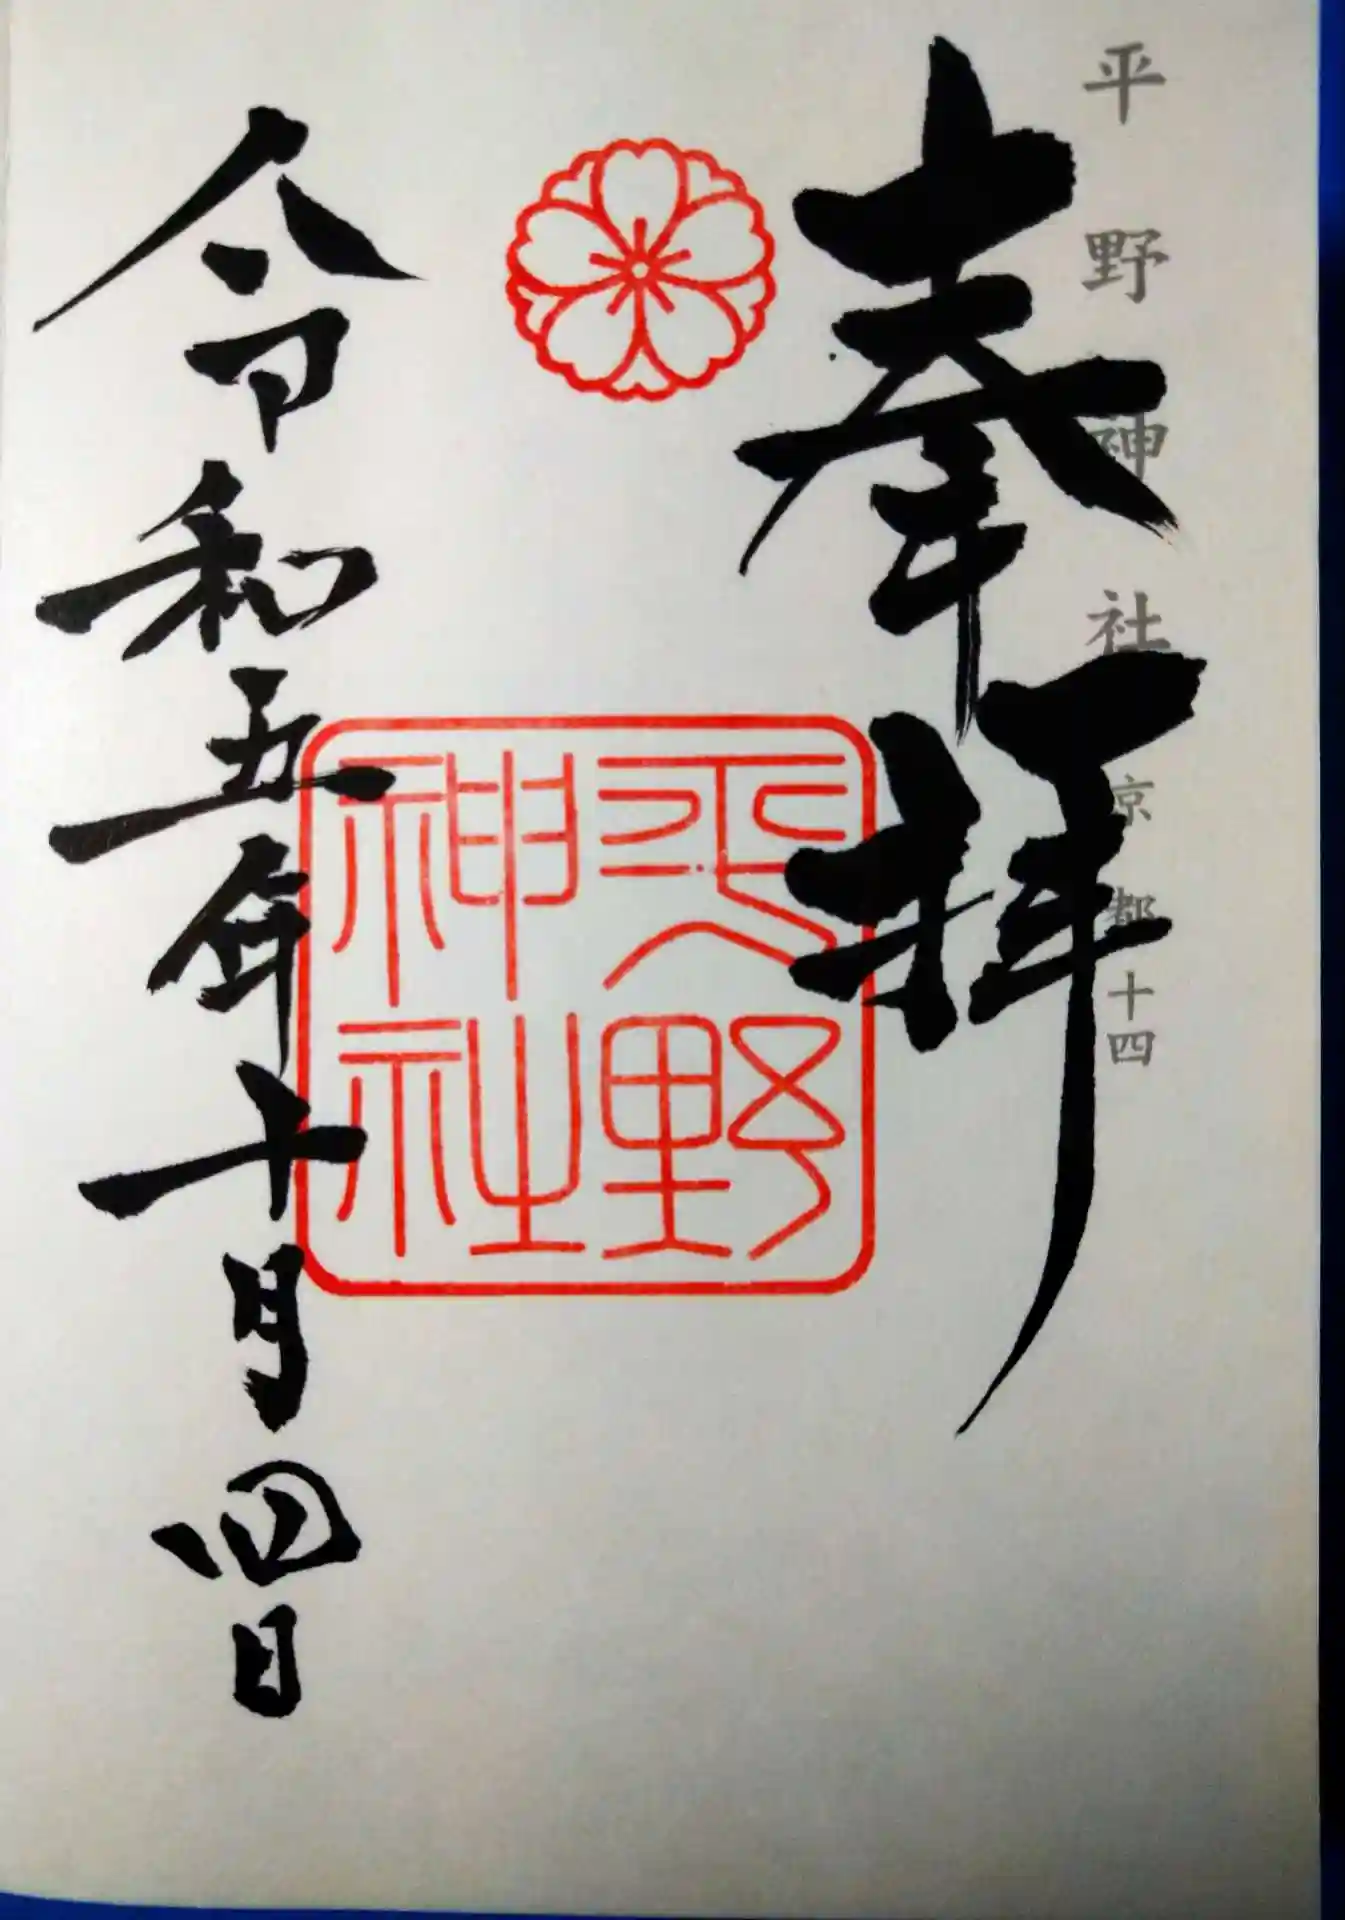 平野神社 京都十四
奉拝
平野
神社
令和五年十月四日